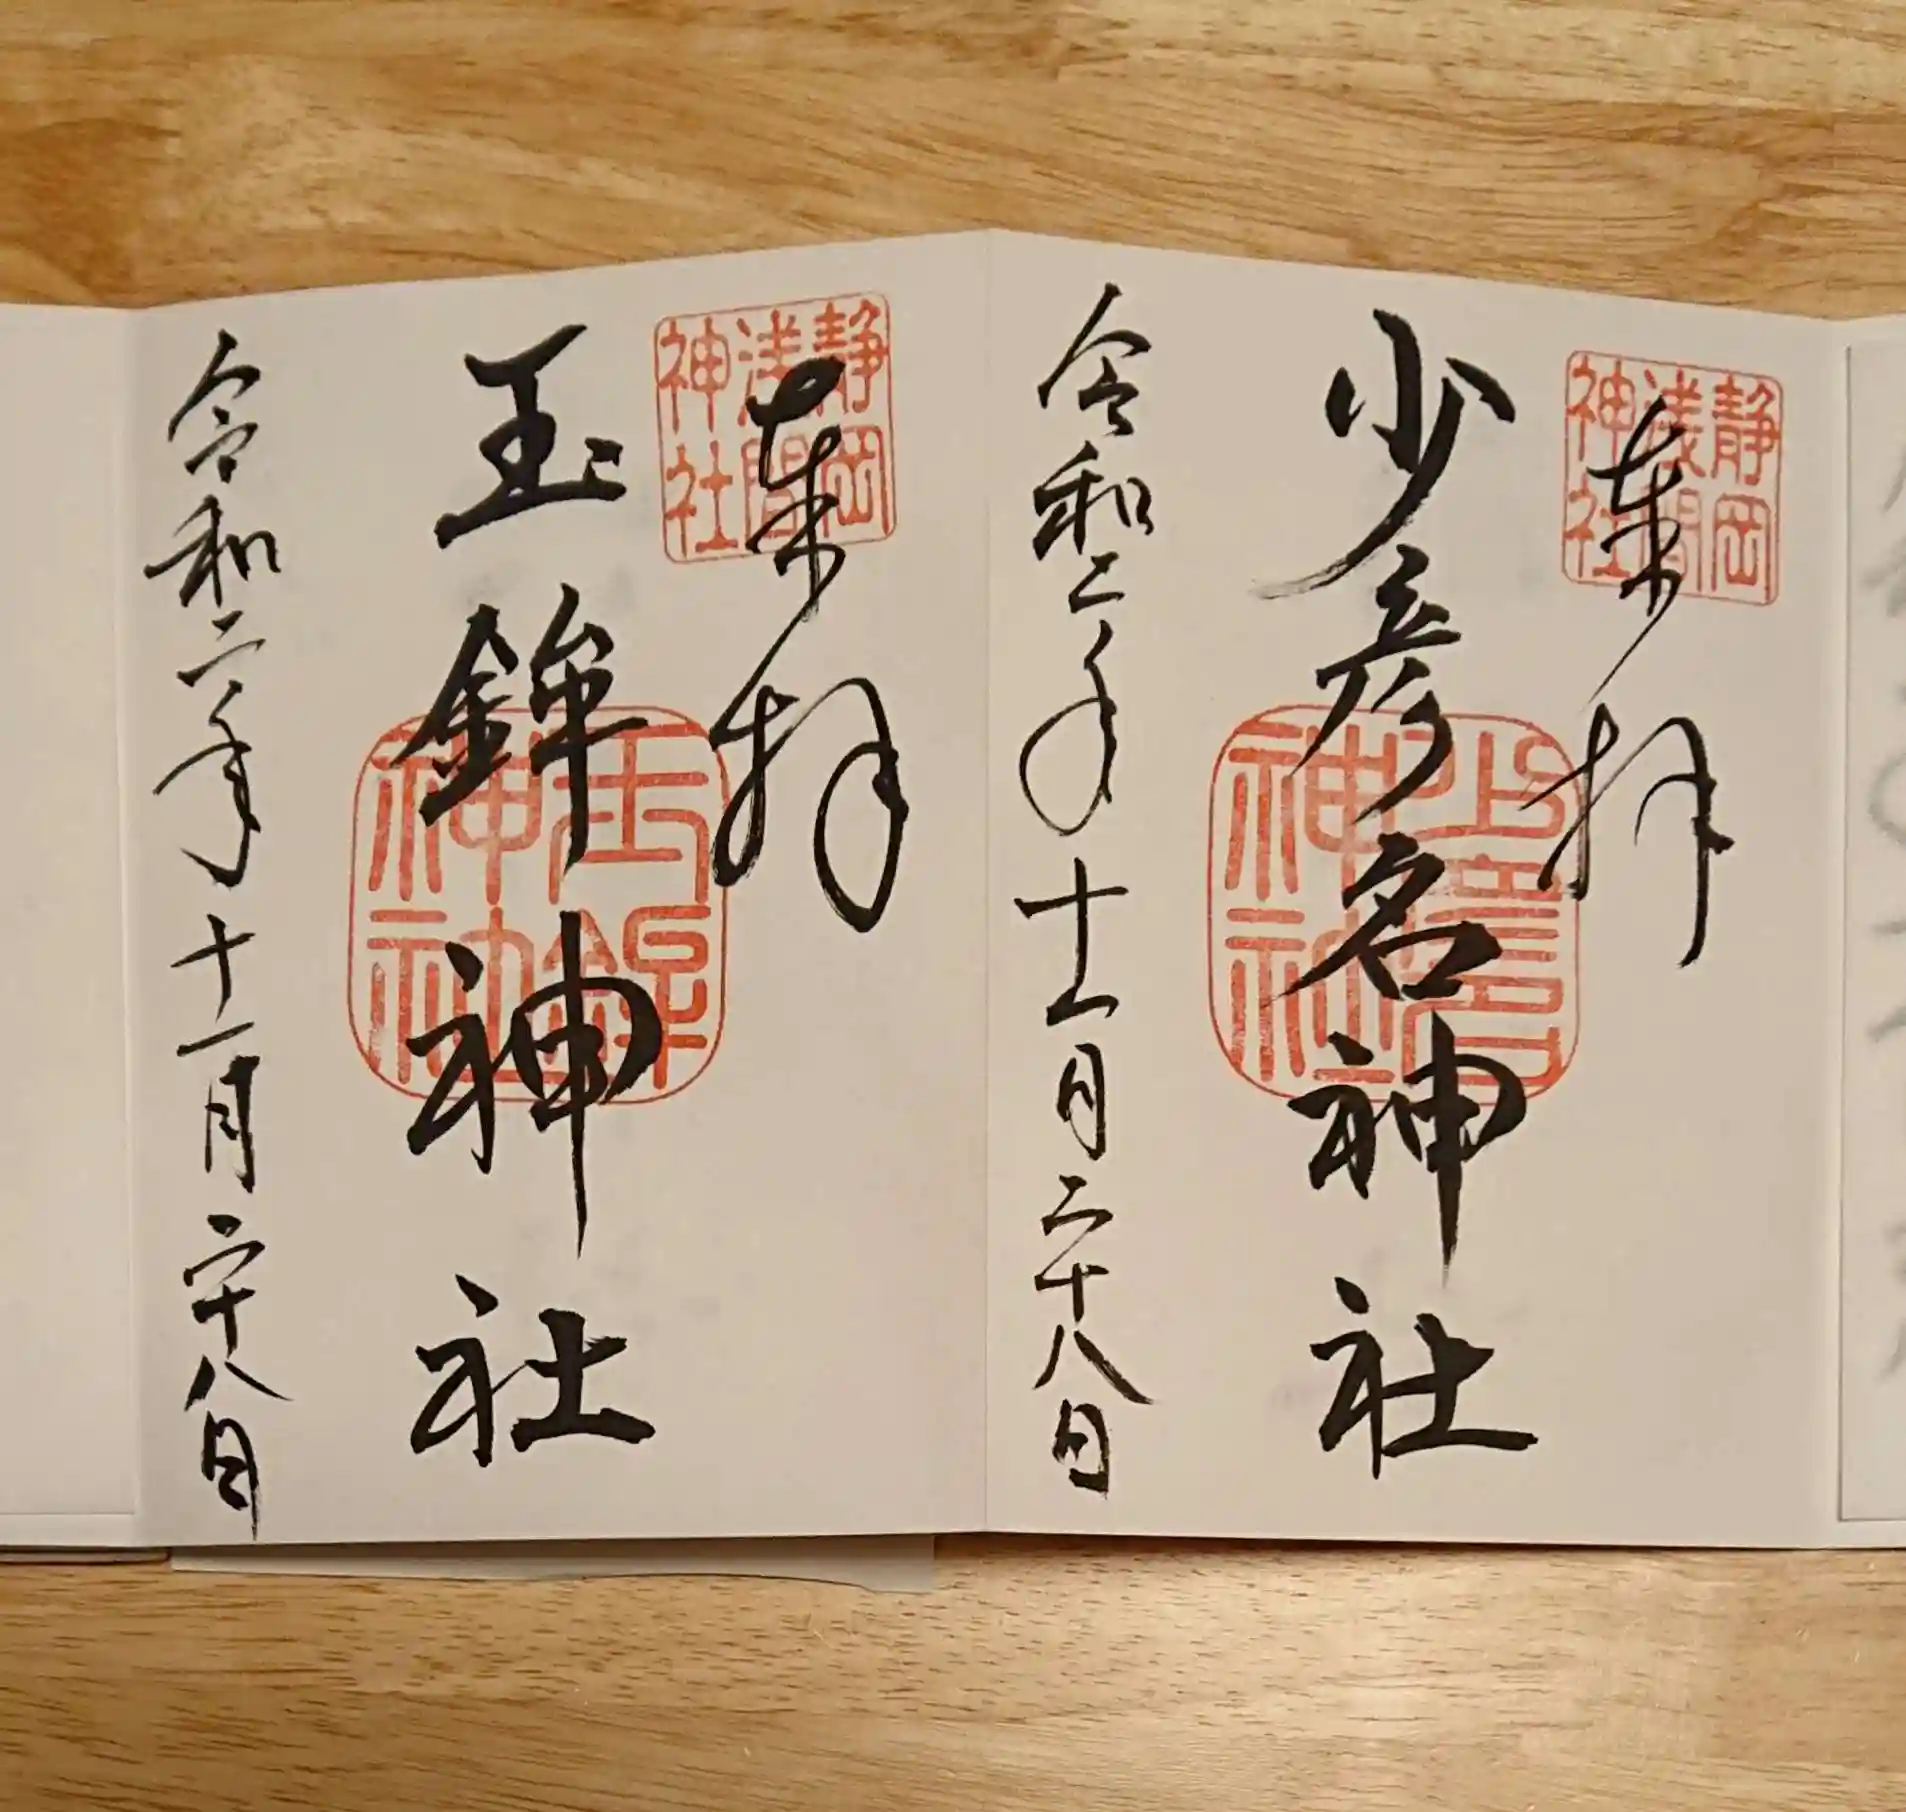 奉拝
静岡
浅間
神社
少彦名神社
少彦名
神社
令和二年十一月二十八日
奉拝
静岡
浅間
神社
玉鉾神社
玉鉾
神社
令和二年十一月二十八日